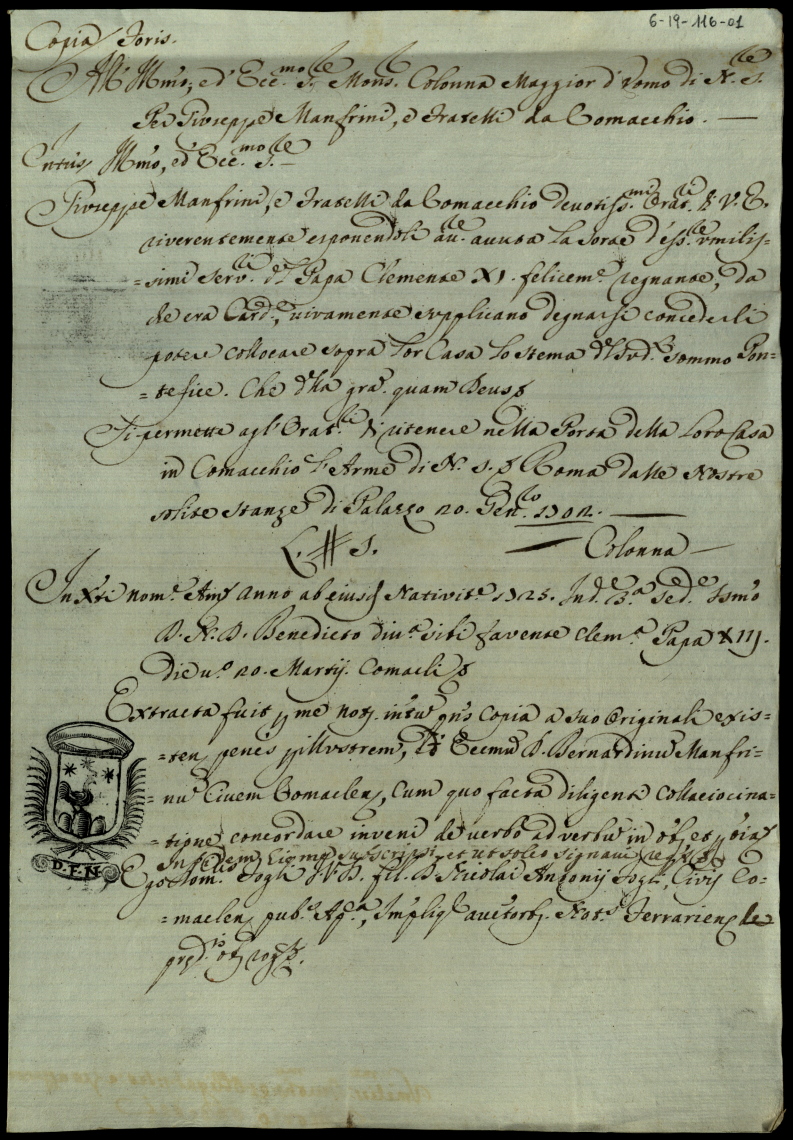 6-19-116-01
Copia Foris.
All' Illmo, ed Ecc.mo Sig.re Mons. Colonna Maggior d'Uomo di N. S.
Per Giuseppe Manfrini, e Fratelli da Comacchio. —
Intus, Illmo, ed Ecc.mo S.re
Giuseppe Manfrini, e Fratelli da Comacchio devotiss.mi Orat.ri di V. E.
riverentemente esponendoli aver avuta la sorte d'ess.re umilis-
=simi Serv.ri del Papa Clemente XI. felicem.e regnante, da
che era Card.le, vivamente supplicano degnarsi concederli
poter collocare sopra lor Casa lo stema del sud.o Sommo Pon-
=tefice. Che della gra. quam Deus &
Si permette agl'Orat.ri di ritenere nella Porta della Loro Casa
in Comacchio l'Arme di N. S. & Roma dalle Nostre
solite stanze di Palazzo 20. Gen.ro 1702. —
L. # S. — Colonna —
In Xti nom.e Am. anno ab ejusd. Nativit.e 1725. Ind.e 3.a Sed.e Ssmo
D. N. D. Benedicto div.a siti favente clem.a Papa XIII.
die v.o 20. Martij. Comacli &
Extracta fuit p me not. infrum pns Copia a suo Originali exis-
=ten, penes pIllustrem, et Eccmum D. Bernardinum Manfri-
=num Civem Comaclen, cum quo facta diligenti collaciocina-
=tione, concordare inveni de verbo ad verbum in oibus et p oia
In quorum fidem, Eiqmp, subscripsi et ut soleo signavi req.s &
Ego Dom. Fogli J. V. D. fil. D. Nicolai Antonij Fogli, Civis Co-
=maclen pub. Ap.a, Impliq auctorb. Not.s Ferrarien, de
prd.is oibus rog.s &.
D. F. N.